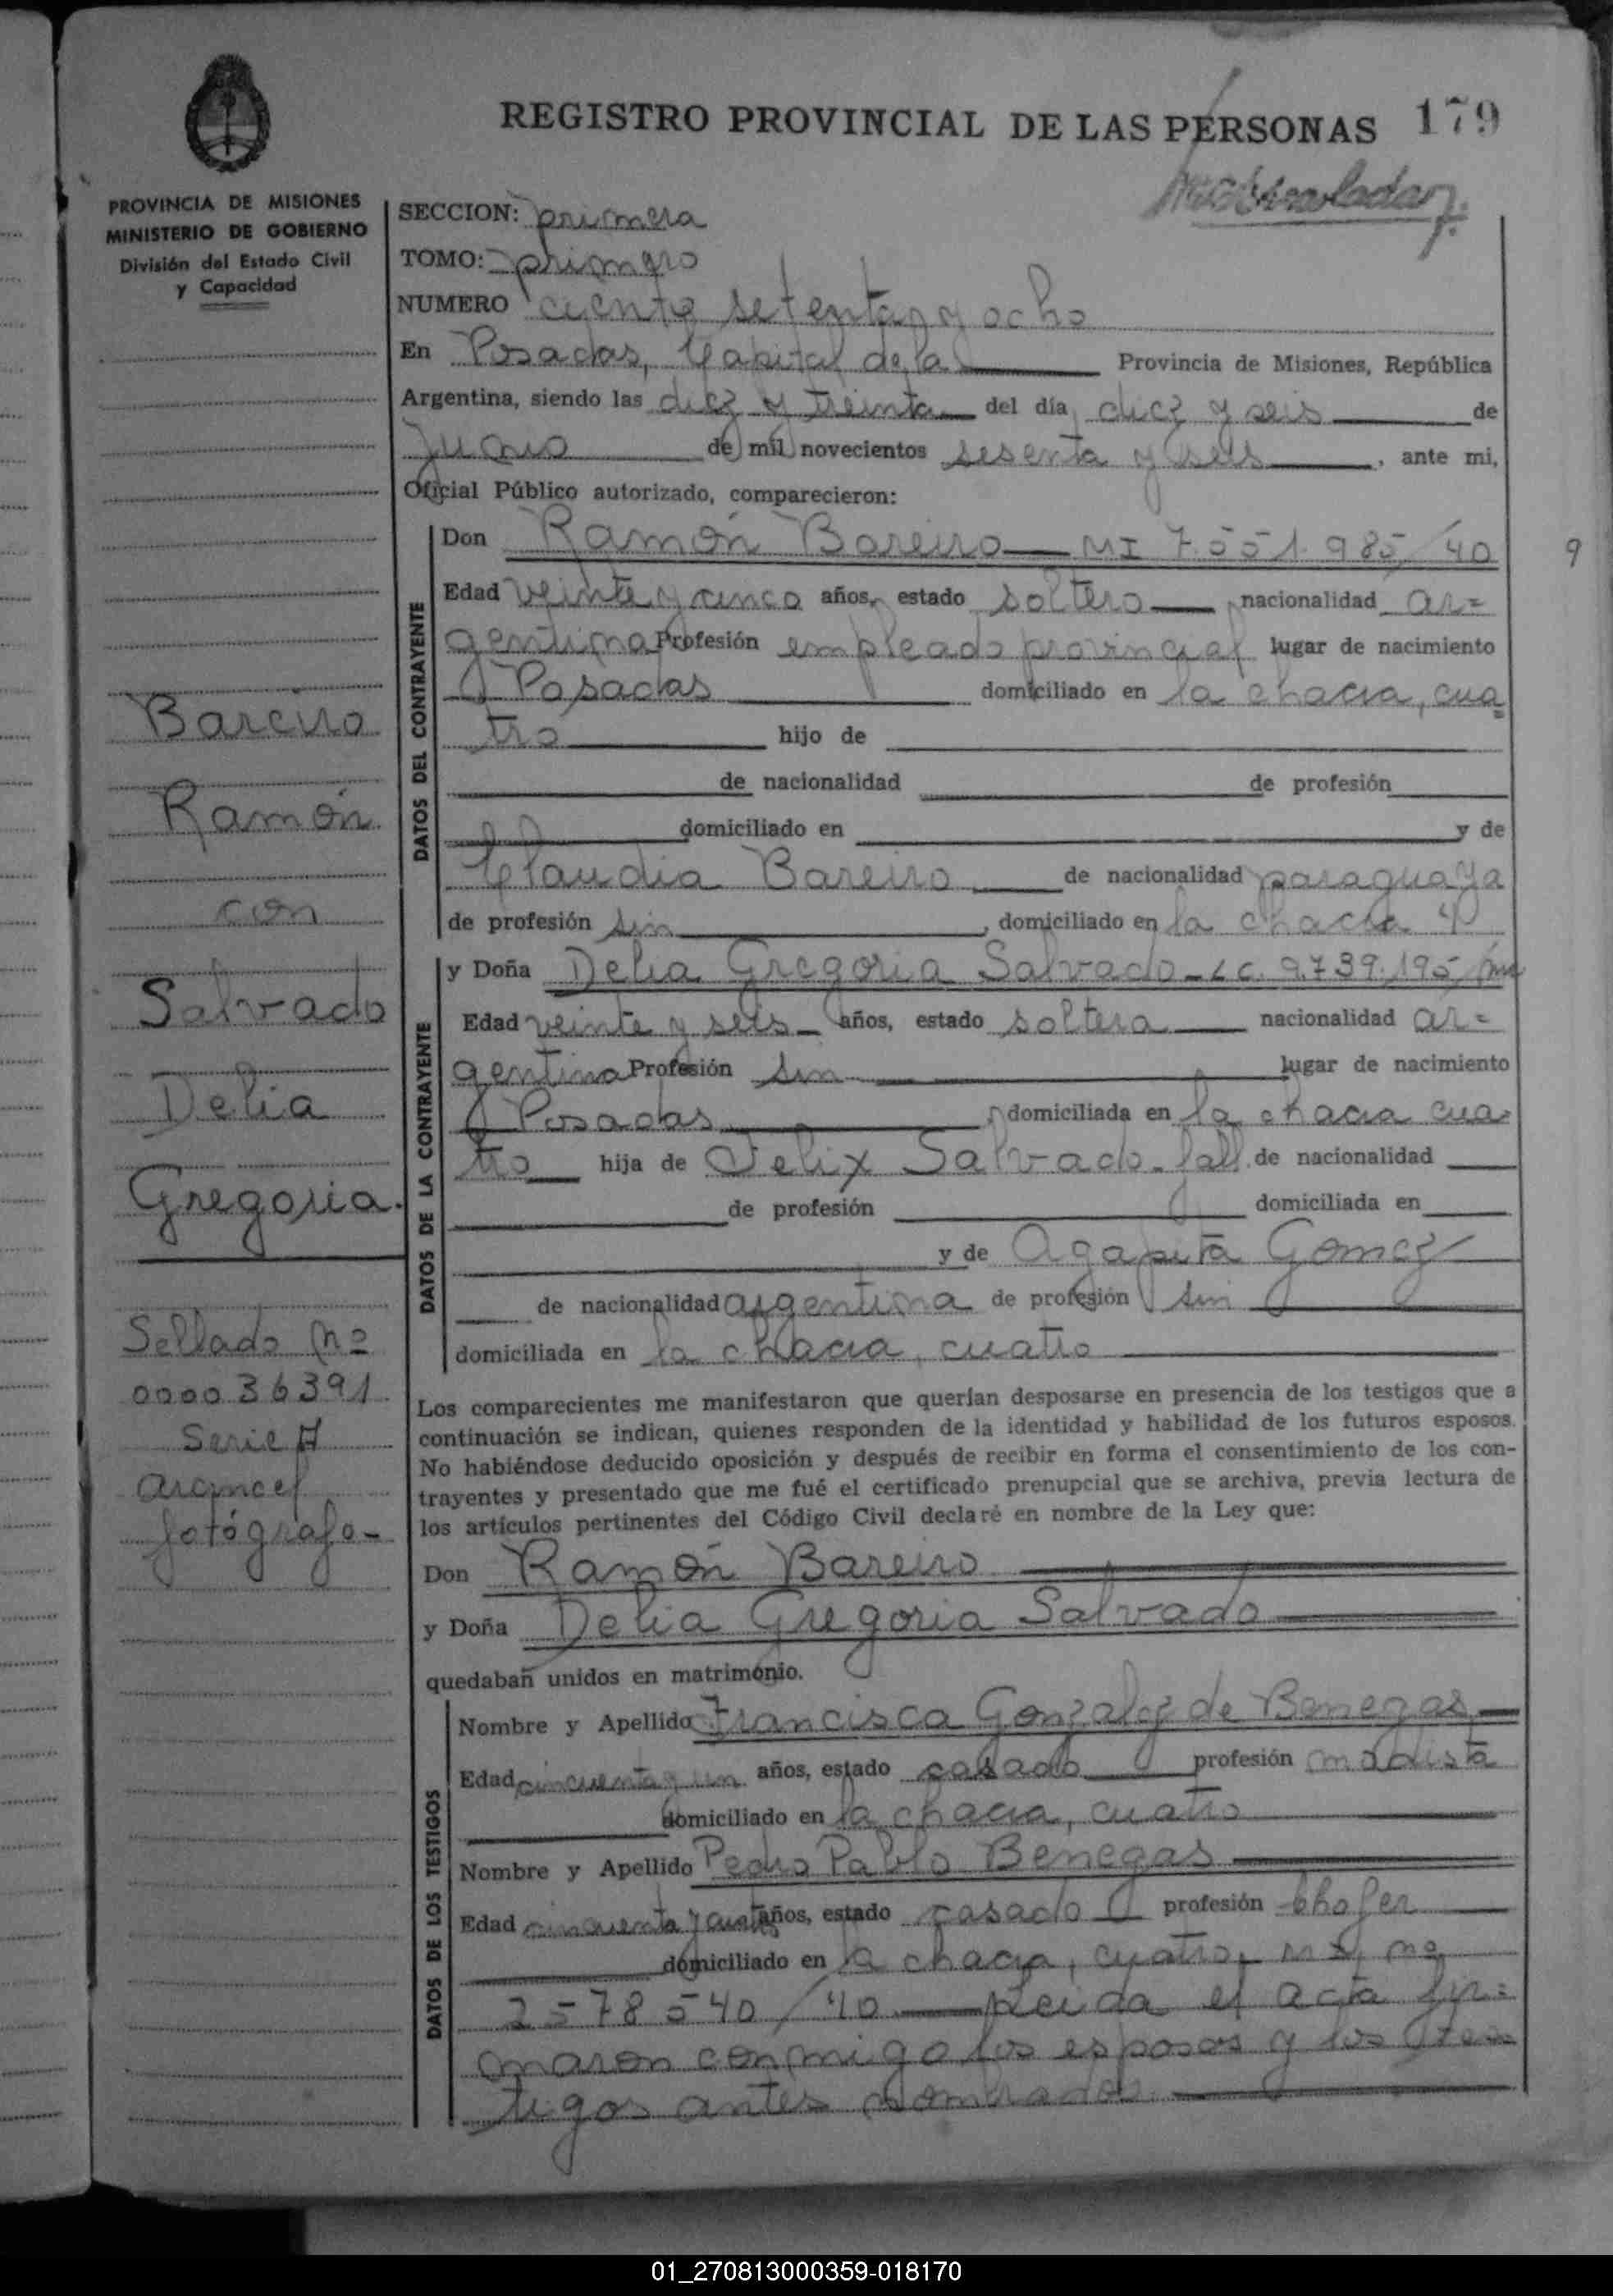 REGISTRO PROVINCIAL DE LAS PERSONAS 179
PROVINCIA DE MISIONES
MINISTERIO DE GOBIERNO
División del Estado Civil
y Capacidad
Bareiro
Ramón
con
Salvado
Delia
Gregoria.
Sellado nº
000036391
Serie A
arancel
fotógrafo-
SECCION: primera
TOMO: primero
NUMERO ciento setenta y ocho
En Posadas, Capital de la Provincia de Misiones, República
Argentina, siendo las diez y treinta del día diez y seis de
Junio de mil novecientos sesenta y seis, ante mi,
Oficial Público autorizado, comparecieron:
DATOS DEL CONTRAYENTE
Don Ramón Bareiro — MI 7.551.985/40
9
Edad veinte y cinco años, estado soltero nacionalidad ar=
gentina Profesión empleado provincial lugar de nacimiento
Posadas domiciliado en la chacra, cua=
tro hijo de
de nacionalidad de profesión
domiciliado en y de
Claudia Bareiro de nacionalidad paraguaya
de profesión sin, domiciliado en la chacra 4
DATOS DE LA CONTRAYENTE
y Doña Delia Gregoria Salvado - LC. 9.739.195/
Edad veinte y seis años, estado soltera nacionalidad ar=
gentina Profesión sin lugar de nacimiento
Posadas domiciliada en la chacra cua=
tro hija de Felix Salvado - fall. de nacionalidad
de profesión domiciliada en
y de Agapita Gomez
de nacionalidad argentina de profesión sin
domiciliada en la chacra, cuatro
Los comparecientes me manifestaron que querían desposarse en presencia de los testigos que a
continuación se indican, quienes responden de la identidad y habilidad de los futuros esposos.
No habiéndose deducido oposición y después de recibir en forma el consentimiento de los con-
trayentes y presentado que me fué el certificado prenupcial que se archiva, previa lectura de
los artículos pertinentes del Código Civil declaré en nombre de la Ley que:
Don Ramón Bareiro
y Doña Delia Gregoria Salvado
quedaban unidos en matrimonio.
DATOS DE LOS TESTIGOS
Nombre y Apellido Francisca Gonzalez de Benegas
Edad cincuenta y un años, estado casado profesión modista
domiciliado en la chacra, cuatro
Nombre y Apellido Pedro Pablo Benegas
Edad cincuenta y cuatro años, estado casado profesión Chofer
domiciliado en la chacra, cuatro, MI, nº
2578540/40 — Leida el acta fir=
maron conmigo los esposos y los tes=
tigos antes nombrados.
01_270813000359-018170